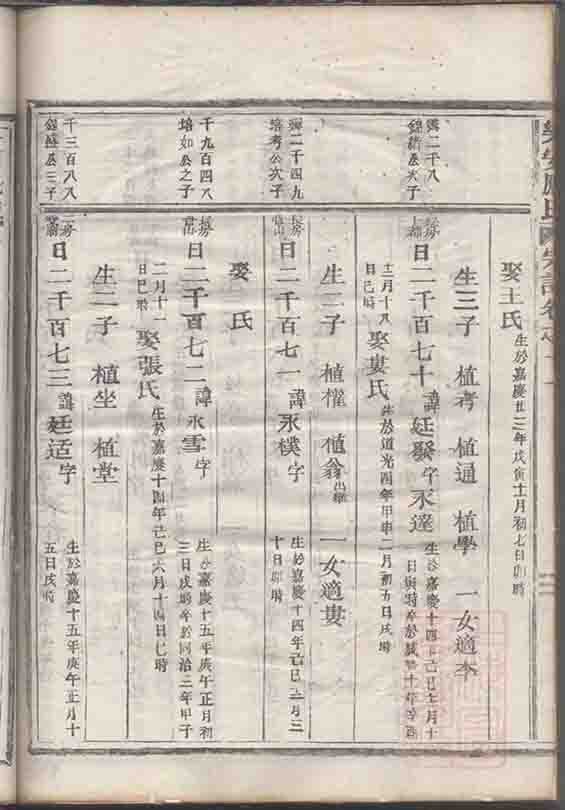 娶王氏 生於嘉慶廿三年戊寅十月初七日卯時
生三子 植考 植通 植學 一女適李
興二千八
錦緒公次子
長房
日二千百七十 諱廷發字永達 生於嘉慶十四年己巳七月十
日寅時卒於咸豐十年
十二月十八
日巳時 娶婁氏 生於道光四年甲申二月初五日戌時
生二子 植權 植翁出繼 一女適婁
興二千四九
培考公次子
長房
日二千百七一 諱永樸字 生於嘉慶十四年己巳三月三
十日卯時
娶氏
千九百四八
培如公之子
長房
日二千百七二 諱永雪字 生於嘉慶十五年庚午正月初
三日戌時卒於同治三年甲子
二月十一
日巳時 娶張氏 生於嘉慶十四年己巳六月十四日巳時
生二子 植坐 植堂
千三百八八
錦盛公三子
二房
日二千百七三 諱廷适字 生於嘉慶十五年庚午正月十
五日戌時